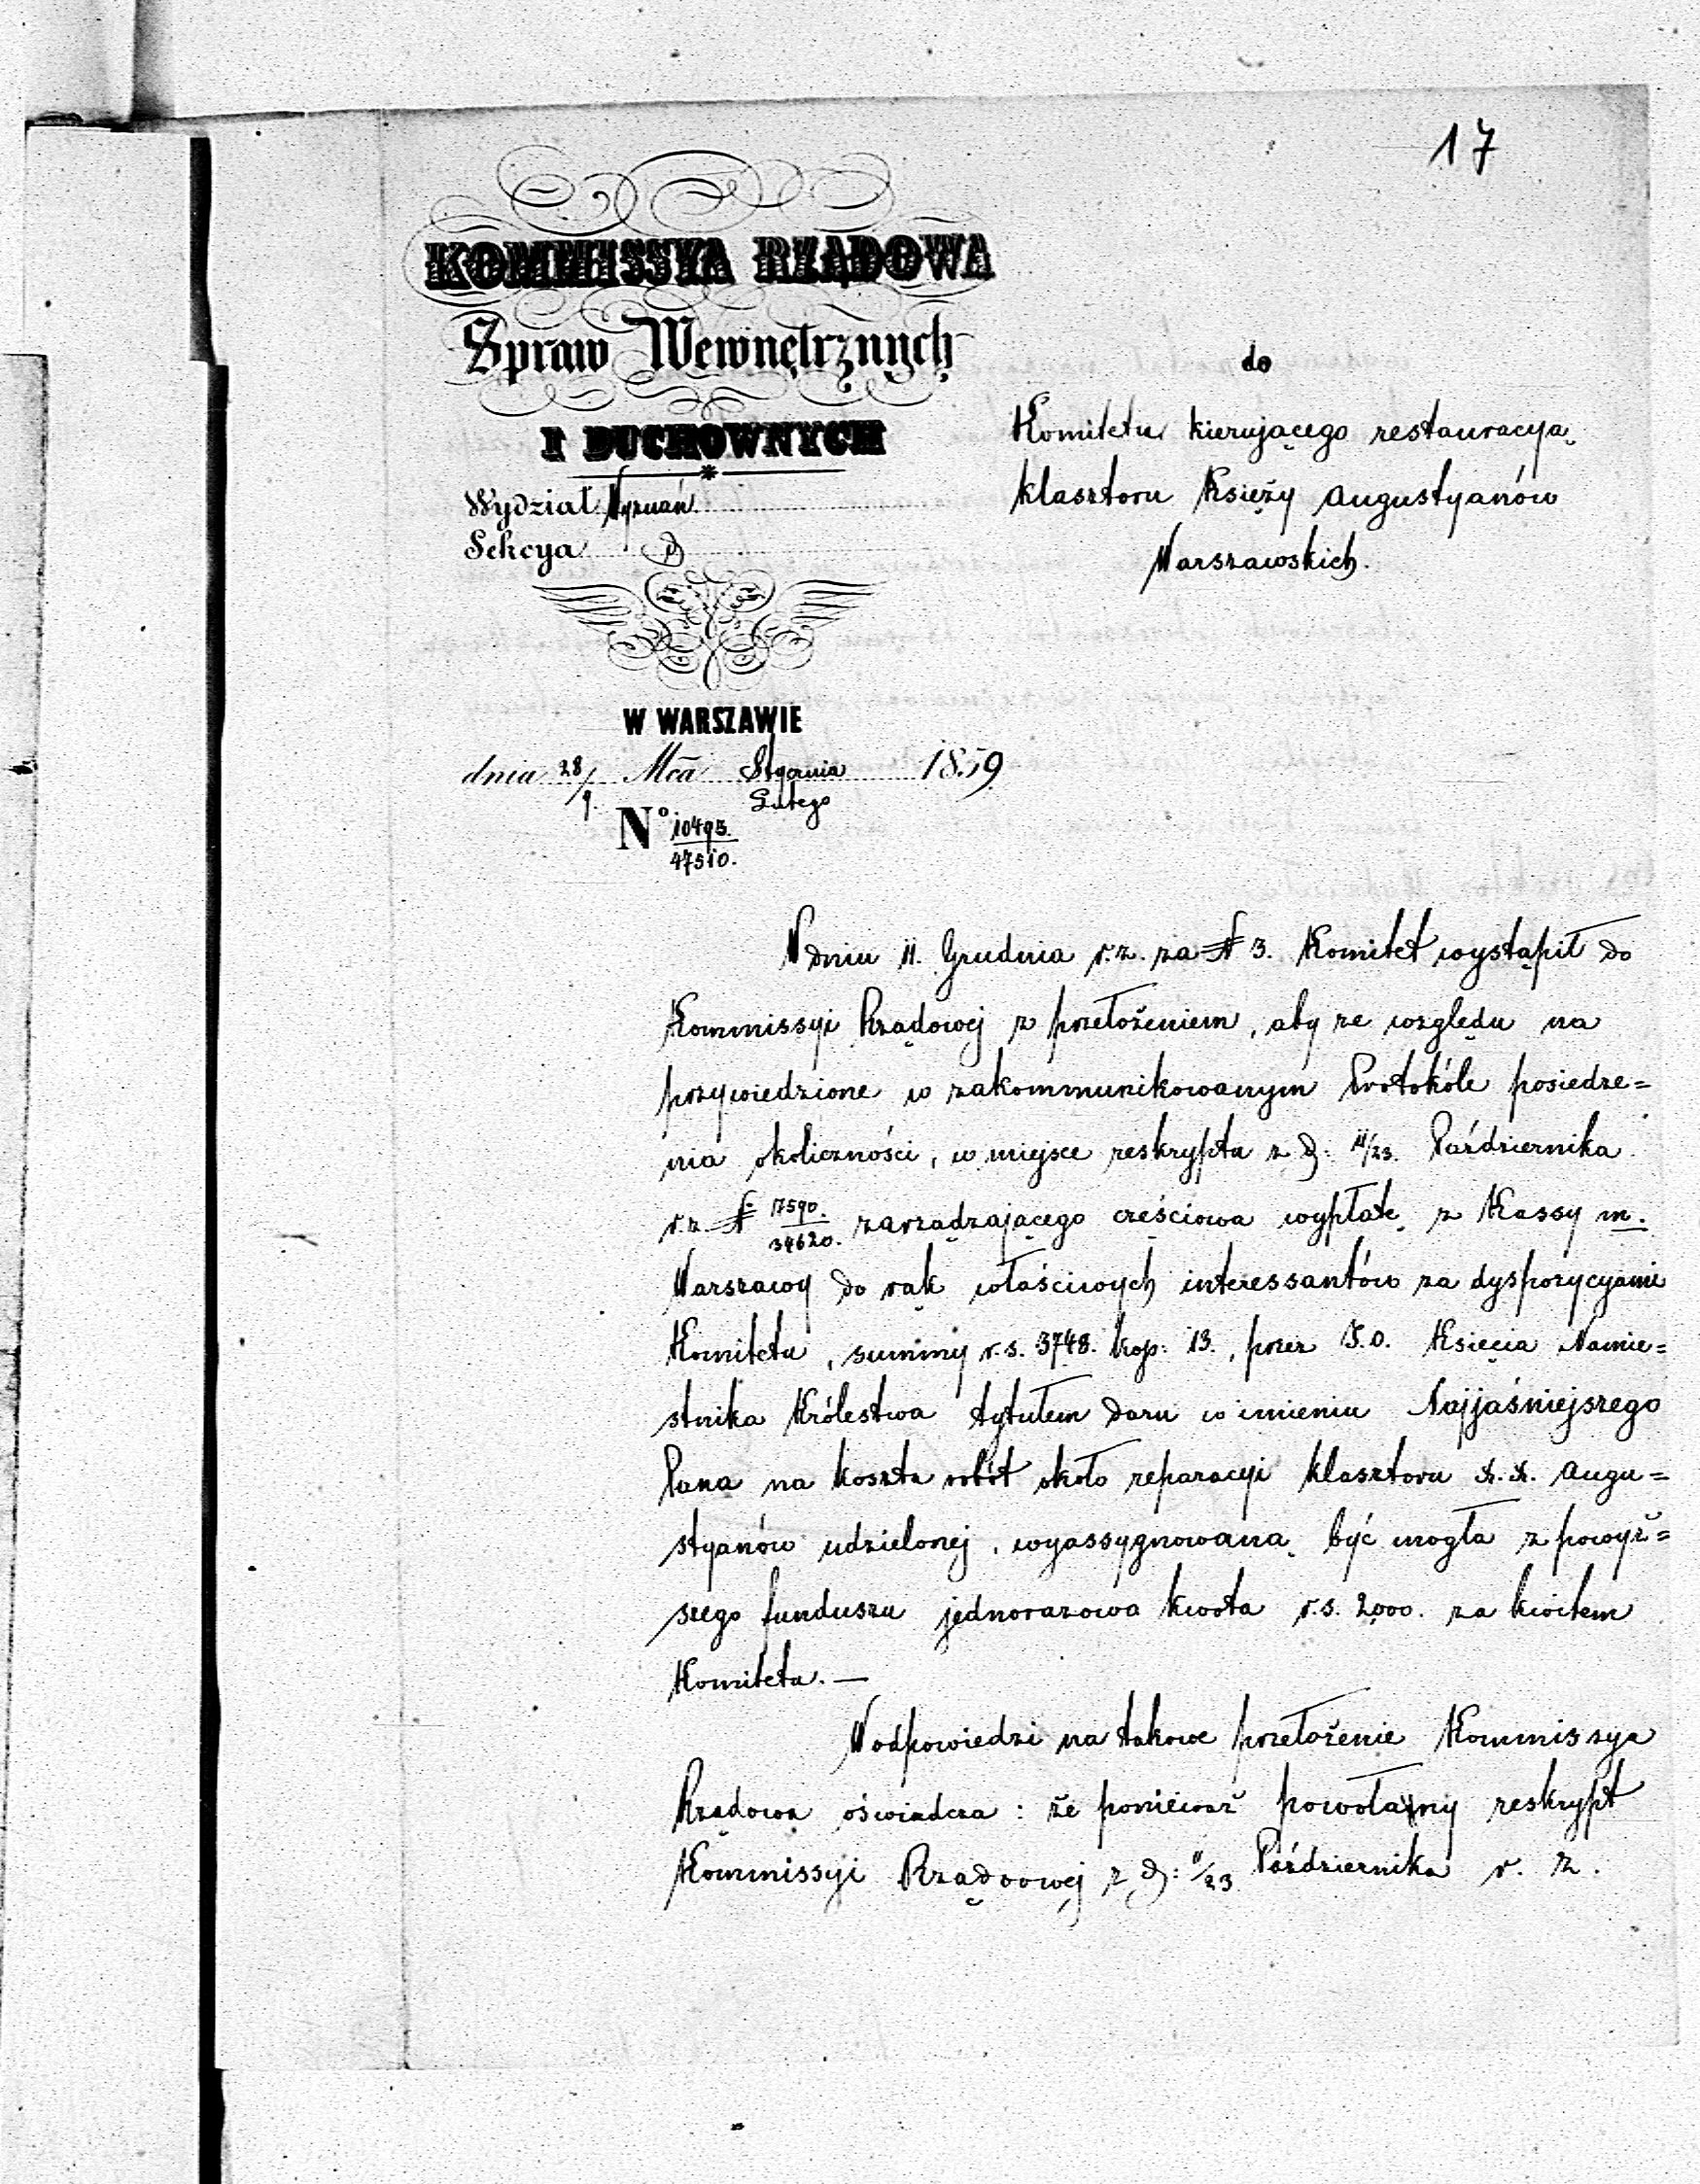 17
KOMMISSYA RZĄDOWA
Spraw Wewnętrznych
I DUCHOWNYCH
Wydział Wyznań
Sekcya D
W WARSZAWIE
dnia 28/9. Mca Stycznia Lutego 1859
No 10495./47510.
do
Komitetu kierującego restauracyą
klasztoru Księży Augustyanów
Warszawskich.
W dniu 11. Grudnia r. z. za N 3. Komitet wystąpił do
Kommissyi Rządowej z przełożeniem, aby ze względu na
przywiedzione w zakommunikowanym Protokóle posiedze=
nia okoliczności, w miejsce reskryptu z d: 11/23. Października
r. z N 17590./34620. zarządzającego częściowa wypłatę z Kassy m.
Warszawy do rąk właściwych interessantów za dyspozycyami
Komitetu, summy r. s. 3748. kop: 13., przez J. O. Księcia Namie=
stnika Królestwa tytułem daru w imieniu Najjaśniejszego
Pana na koszta robót około reparacyi klasztoru X. X. Augu=
styanów udzielonej, wyassygnowaną być mogła z powyż=
szego funduszu jednorazowa kwota r. s. 2000. za kwitem
Komitetu. —
W odpowiedzi na takowe przełożenie Kommissya
Rządowa oświadcza: że ponieważ powołany reskrypt
Kommissyi Rządowej z d: 11/23 Października r. z.